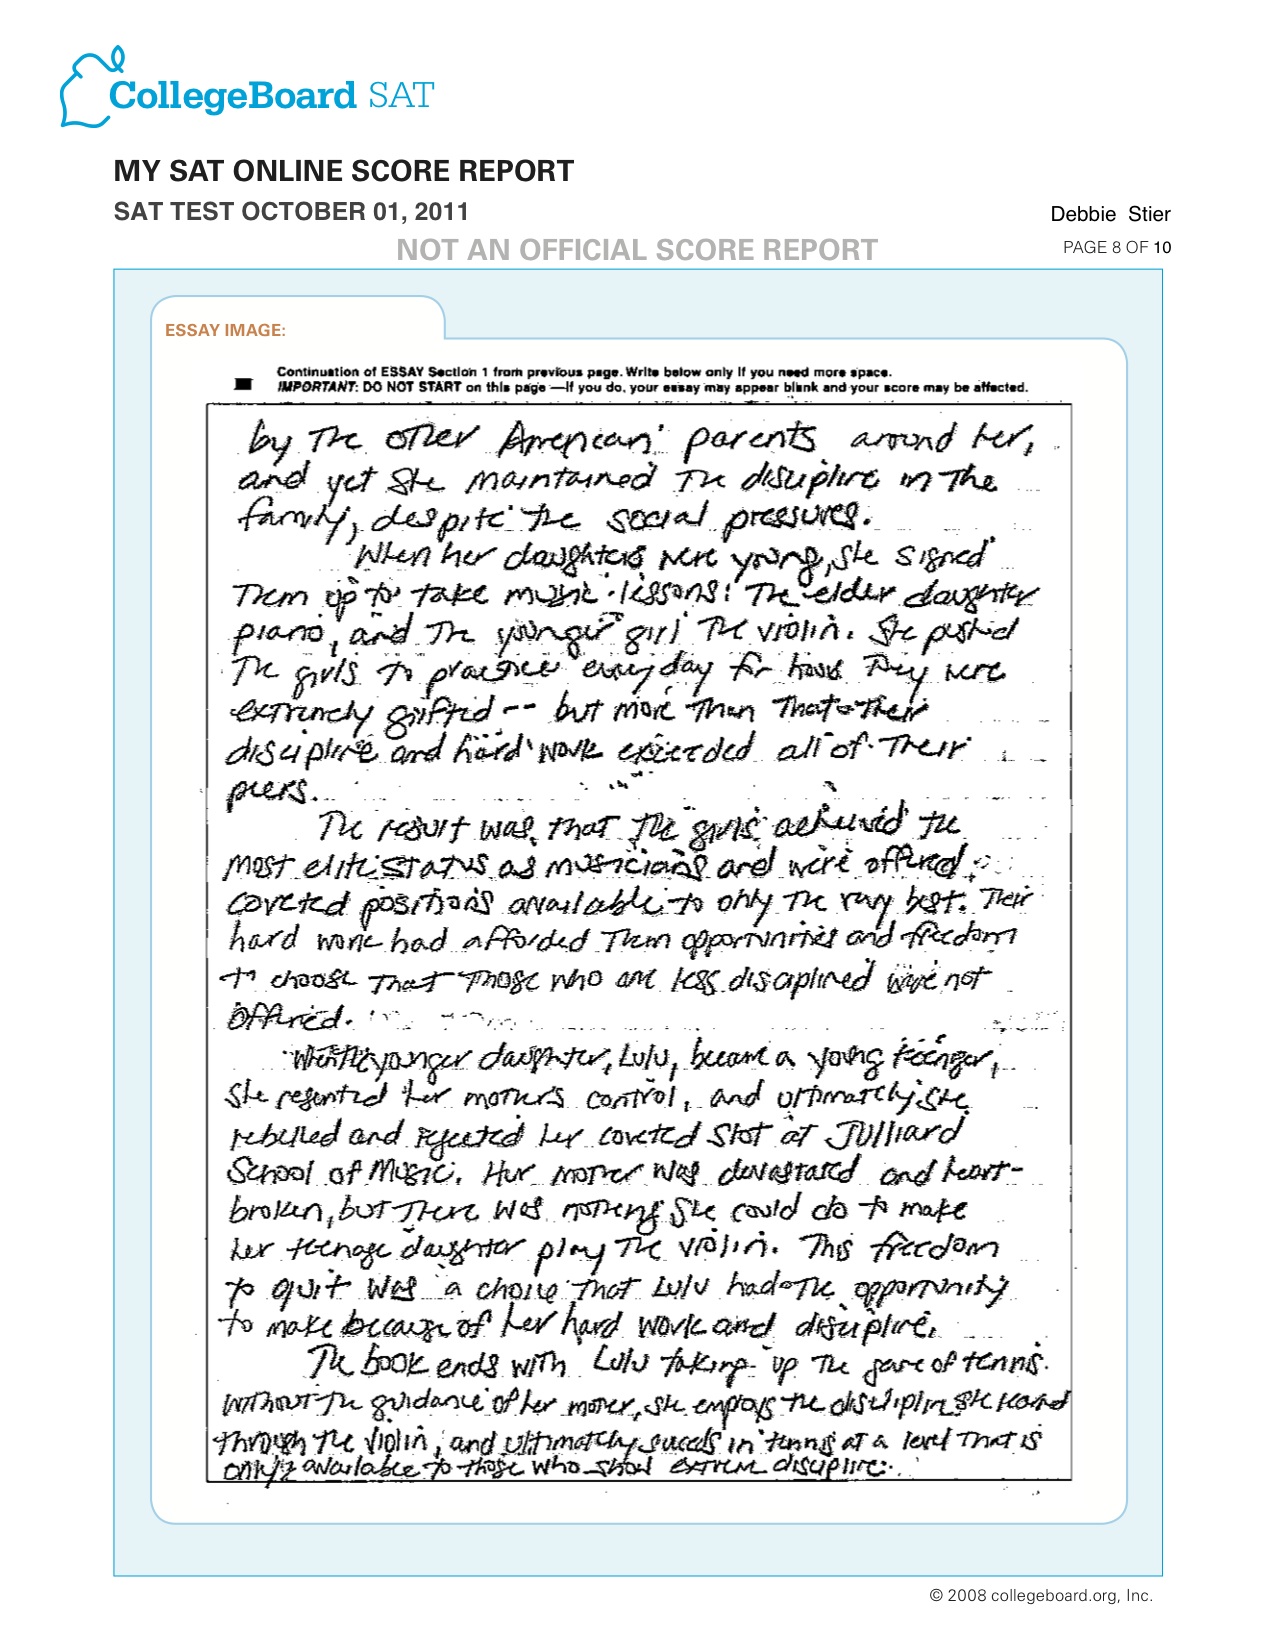 CollegeBoard SAT
MY SAT ONLINE SCORE REPORT
SAT TEST OCTOBER 01, 2011
Debbie Stier
NOT AN OFFICIAL SCORE REPORT
PAGE 8 OF 10
ESSAY IMAGE:
Continuation of ESSAY Section 1 from previous page. Write below only if you need more space.
IMPORTANT: DO NOT START on this page—if you do, your essay may appear blank and your score may be affected.
by the other American parents around her,
and yet she maintained the discipline in the
family, despite the social pressures.
When her daughters were young, she signed
them up to take music lessons: The elder daughter
piano, and the younger girl the violin. She pushed
the girls to practice every day for hours. They were
extremely gifted -- but more than that - their
discipline and hard work exceeded all of their
peers.
The result was that the girls achieved the
most elite status as musicians and were offered
coveted positions available to only the very best. Their
hard work had afforded them opportunities and freedom
to choose that those who are less disciplined were not
offered.
When the younger daughter, Lulu, became a young teenager,
she resented her mother's control, and ultimately she
rebelled and rejected her coveted slot at Julliard
School of Music. Her mother was devastated and heart-
broken, but there was nothing she could do to make
her teenage daughter play the violin. This freedom
to quit was a choice that Lulu had the opportunity
to make because of her hard work and discipline.
The book ends with Lulu taking up the game of tennis.
Without the guidance of her mother, she employs the discipline she learned
through the violin, and ultimately succeeds in tennis at a level that is
only available to those who show extreme discipline.
© 2008 collegeboard.org, Inc.